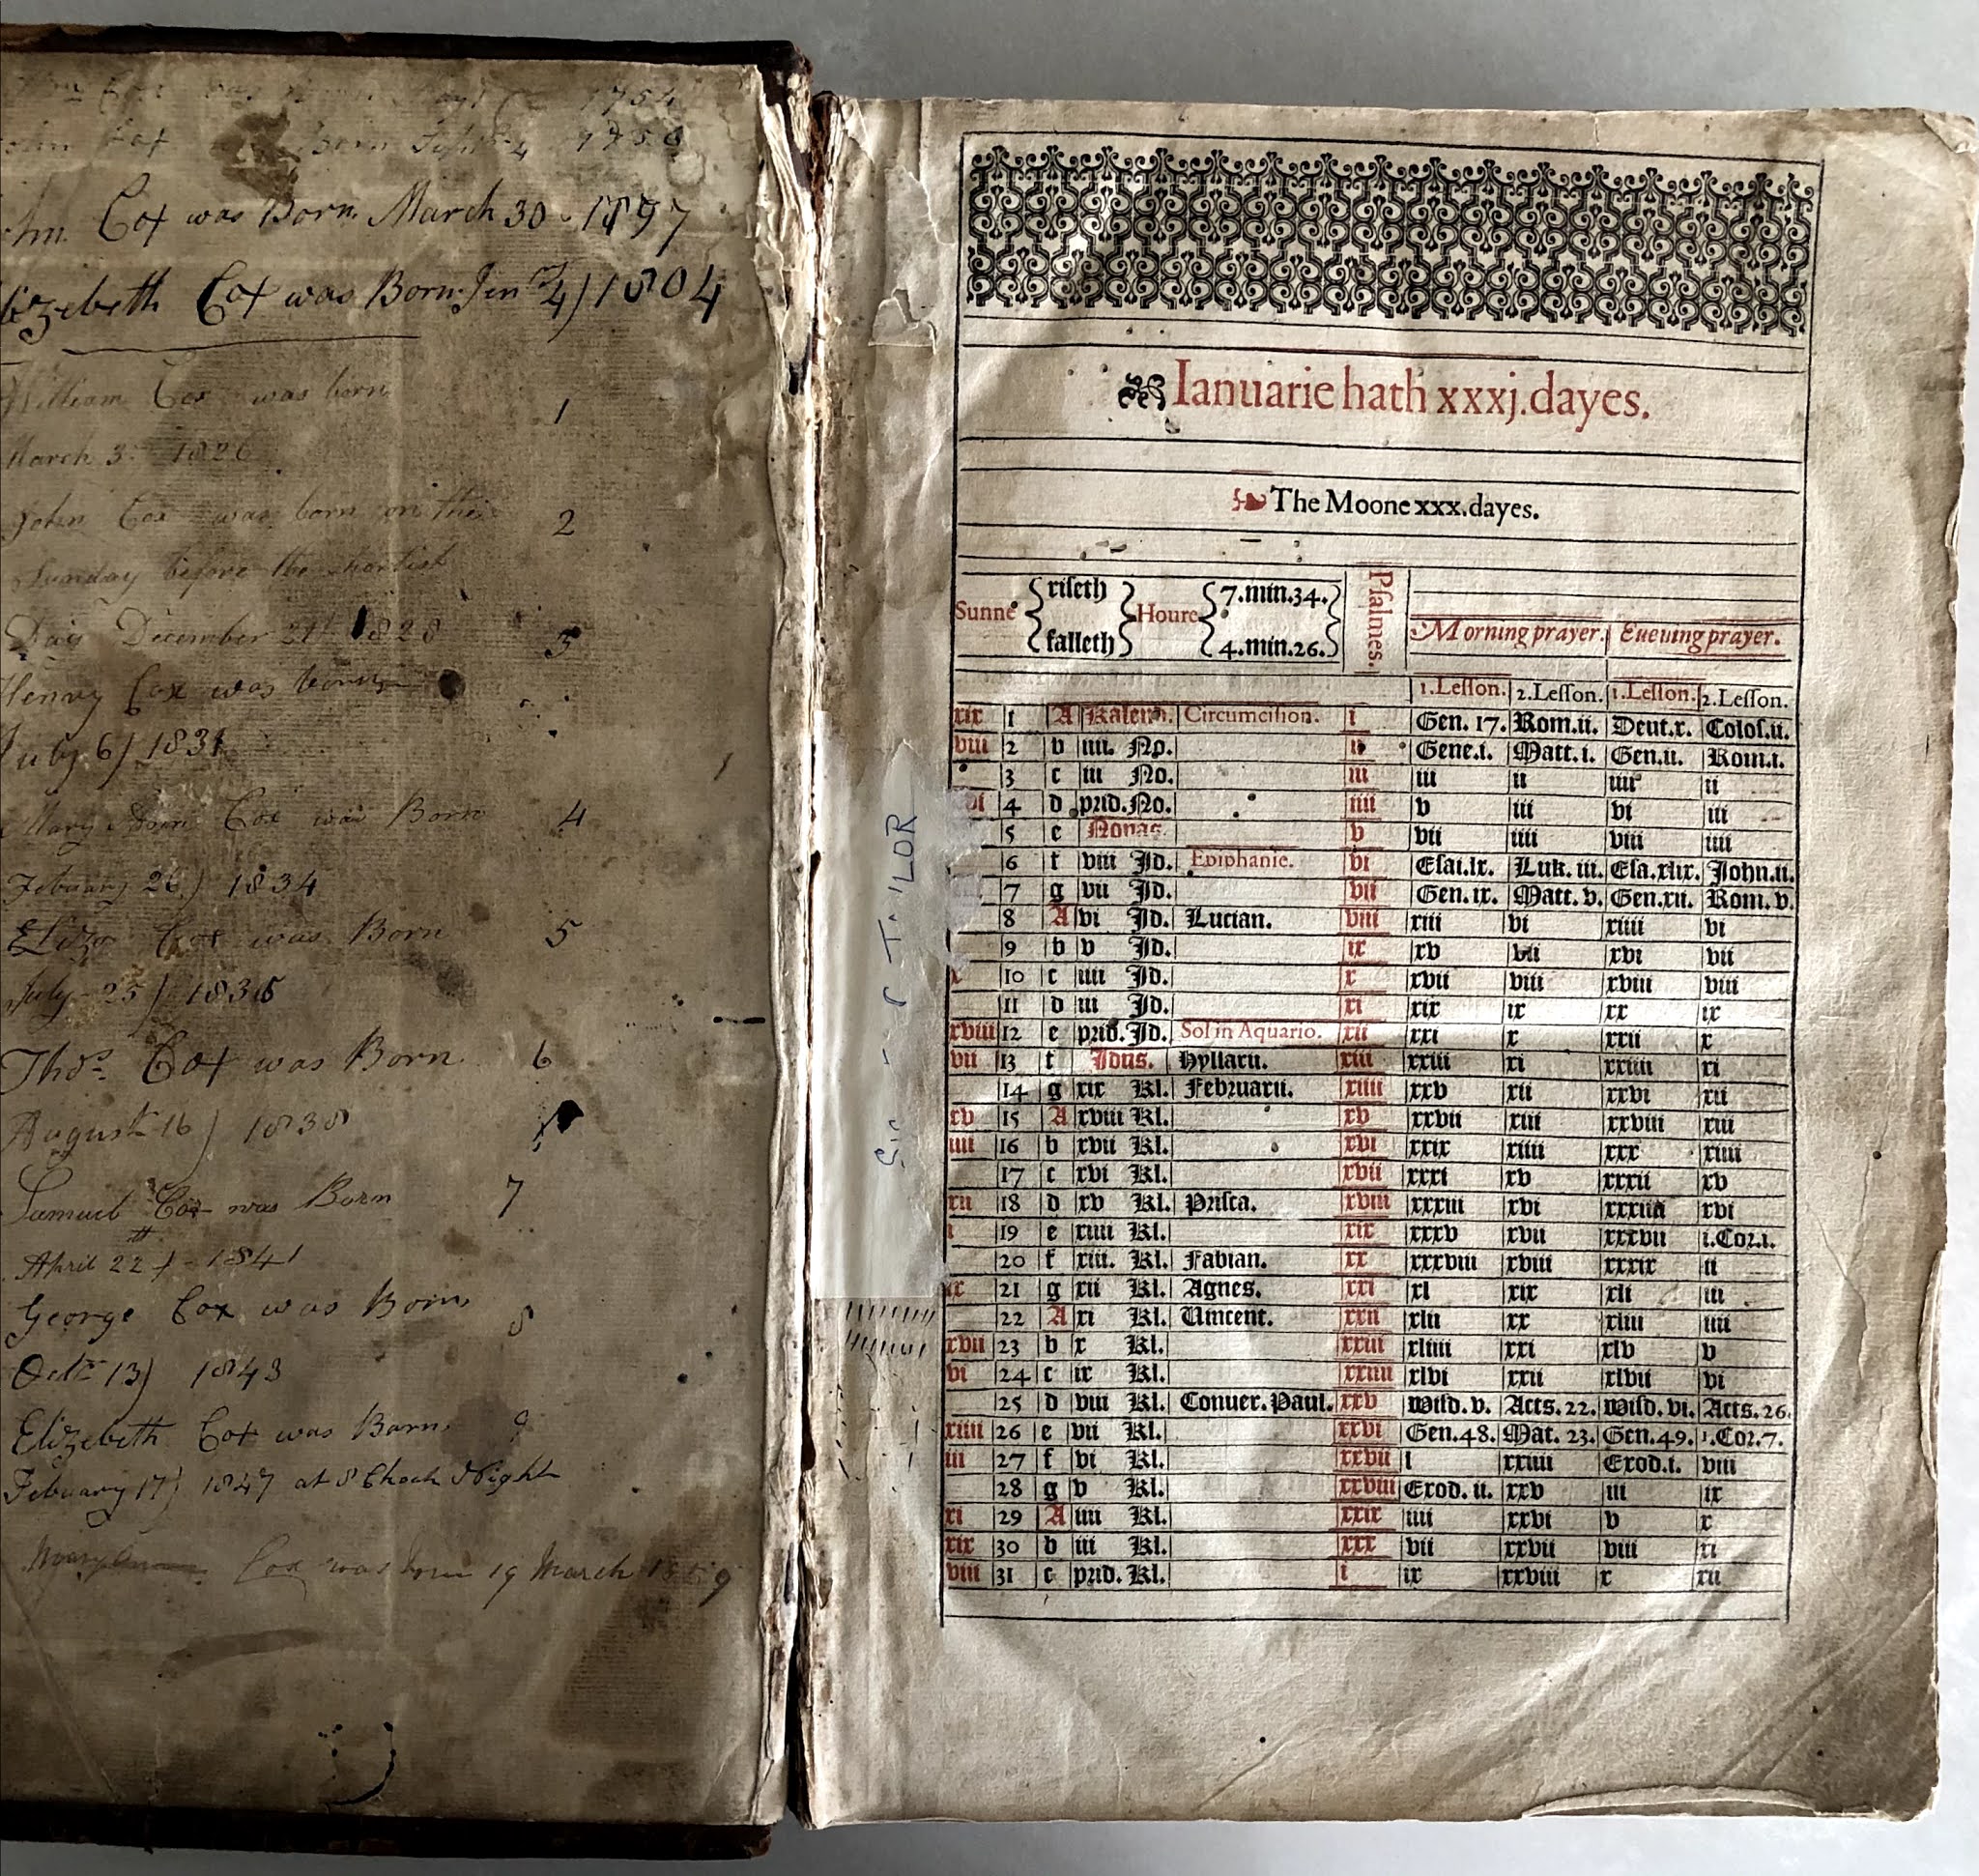 Cox was Born 1754
Cox Born 4
Cox was Born March 30 1797
lizebeth Cox was Born Jen 4) 1804
William Cox was born 1
March 3 1826
John Cox was born on the 2
Sunday before the shortist
Day December 21 1828 3
Henry Cox was born
July 6) 1831
Mary Cox was Born 4
Febuary 26) 1834
Eliza Cox was Born 5
July 25)
Thos Cox was Born 6
August 16) 1838
Samuel Cox was Born 7
April 22) 1841
George Cox was Born 8
Octr 13) 1843
Elizebeth Cox was Born 9
Febuary 17) 1847 at 8 Night
Cox was born 19 March
TAYLOR
Ianuarie hath xxxj.dayes.
The Moone xxx.dayes.
Sunne { riseth } Houre { 7.min.34. }
falleth 4.min.26.
Psalmes.
Morning prayer. Euening prayer.
1.Lesson. 2.Lesson. 1.Lesson. 2.Lesson.
xix 1 A Kalend. Circumcision. i Gen. 17. Rom.ii. Deut.x. Colos.ii.
viii 2 b iiii. No. ii Gene.i. Matt.i. Gen.ii. Rom.i.
3 c iii No. iii iii ii iiii ii
4 d prid.No. iiii v iii vi iii
5 e Nonas. v vii iiii viii iiii
6 f viii Id. Epiphanie. vi Esai.lx. Luk.iii. Esa.xlix. John.ii.
7 g vii Id. vii Gen.ix. Matt.v. Gen.xii. Rom.v.
8 A vi Id. Lucian. viii xiii vi xiiii vi
9 b v Id. ix xv vii xvi vii
10 c iiii Id. x xvii viii xviii viii
11 d iii Id. xi xix ix xx ix
xviii 12 e prid.Id. Sol in Aquario. xii xxi x xxii x
vii 13 f Idus. Hyllarii. xiii xxiii xi xxiiii xi
14 g xix Kl. Februarii. xiiii xxv xii xxvi xii
xv 15 A xviii Kl. xv xxvii xiii xxviii xiii
iiii 16 b xvii Kl. xvi xxix xiiii xxx xiiii
17 c xvi Kl. xvii xxxi xv xxxii xv
xii 18 d xv Kl. Prisca. xviii xxxiii xvi xxxiiii xvi
i 19 e xiiii Kl. xix xxxv xvii xxxvii i.Cor.i.
20 f xiii. Kl. Fabian. xx xxxviii xviii xxxix ii
ix 21 g xii Kl. Agnes. xxi xl xix xli iii
22 A xi Kl. Vincent. xxii xlii xx xliii iiii
xvii 23 b x Kl. xxiii xliiii xxi xlv v
vi 24 c ix Kl. xxiiii xlvi xxii xlvii vi
25 d viii Kl. Conuer.Paul. xxv Wisd.v. Acts.22. Wisd.vi. Acts.26.
xiiii 26 e vii Kl. xxvi Gen.48. Mat.23. Gen.49. 1.Cor.7.
iii 27 f vi Kl. xxvii l xxiiii Exod.i. viii
28 g v Kl. xxviii Exod.ii. xxv iii ix
xi 29 A iiii Kl. xxix iiii xxvi v x
xix 30 b iii Kl. xxx vii xxvii viii xi
viii 31 c prid. Kl. i ix xxviii x xii